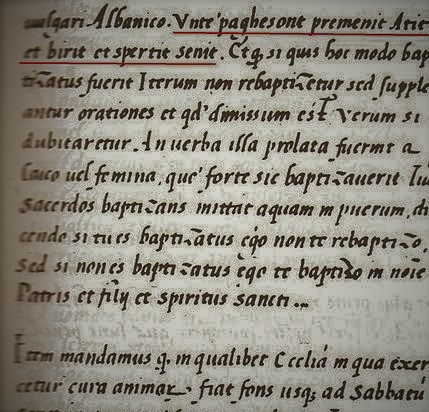 uulgari Albanico. Vnte' paghesont premenit Atit
et birit et spertit senit. Et q, si quis hoc modo bap
tizatus fuerit Iterum non rebaptizetur sed supple
antur orationes et qd' dimissum est Verum si
dubitaretur. An uerba illa prolata fuerint a
laico uel femina, que' forte sic baptizauerit
Sacerdos baptizans mittat aquam in puerum, di
cendo si tu es baptizatus ego non te rebaptizo,
Sed si non es baptizatus ego te baptizo in noie
Patris et filij et spiritus Sancti...
Item mandamus q. in qualibet Ecclia in qua exer
cetur cura animar fiat fons usq; ad Sabbatu